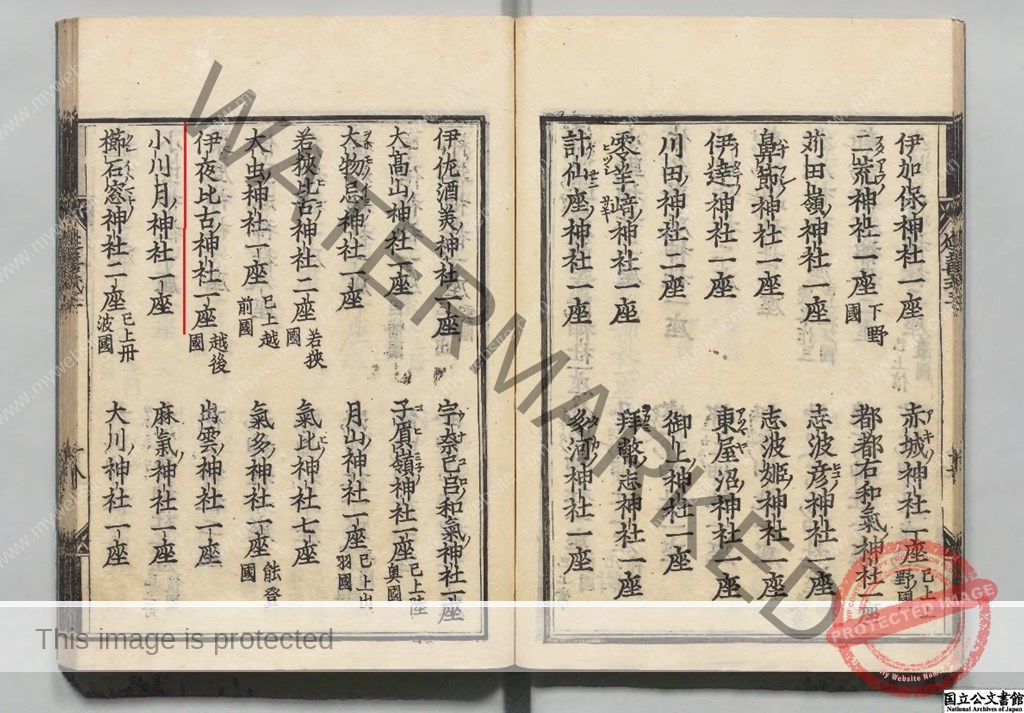 伊加保神社一座
赤城神社一座 已上上野國
二荒神社一座 下野國
都都古和氣神社一座
苅田嶺神社一座
志波彦神社一座
鼻節神社一座
志波姫神社一座
伊達神社一座
東屋沼神社一座
川田神社一座
御上神社一座
零羊埼神社一座
拜幣志神社一座
計仙座神社一座
多河神社一座
伊佐酒美神社一座
宇奈己呂和氣神社一座
大高山神社一座
子負嶺神社一座 已上陸奥國
大物忌神社一座
月山神社一座 已上出羽國
若狹比古神社二座 若狹國
氣比神社七座
大虫神社一座 已上越前國
氣多神社一座 能登國
伊夜比古神社一座 越後國
出雲神社一座
小川月神社一座
麻氣神社一座
櫛石窓神社二座 已上丹波國
大川神社一座
WATERMARKED
This image is protected
PROTECTED IMAGE
My Website Name
国立公文書館
National Archives of Japan